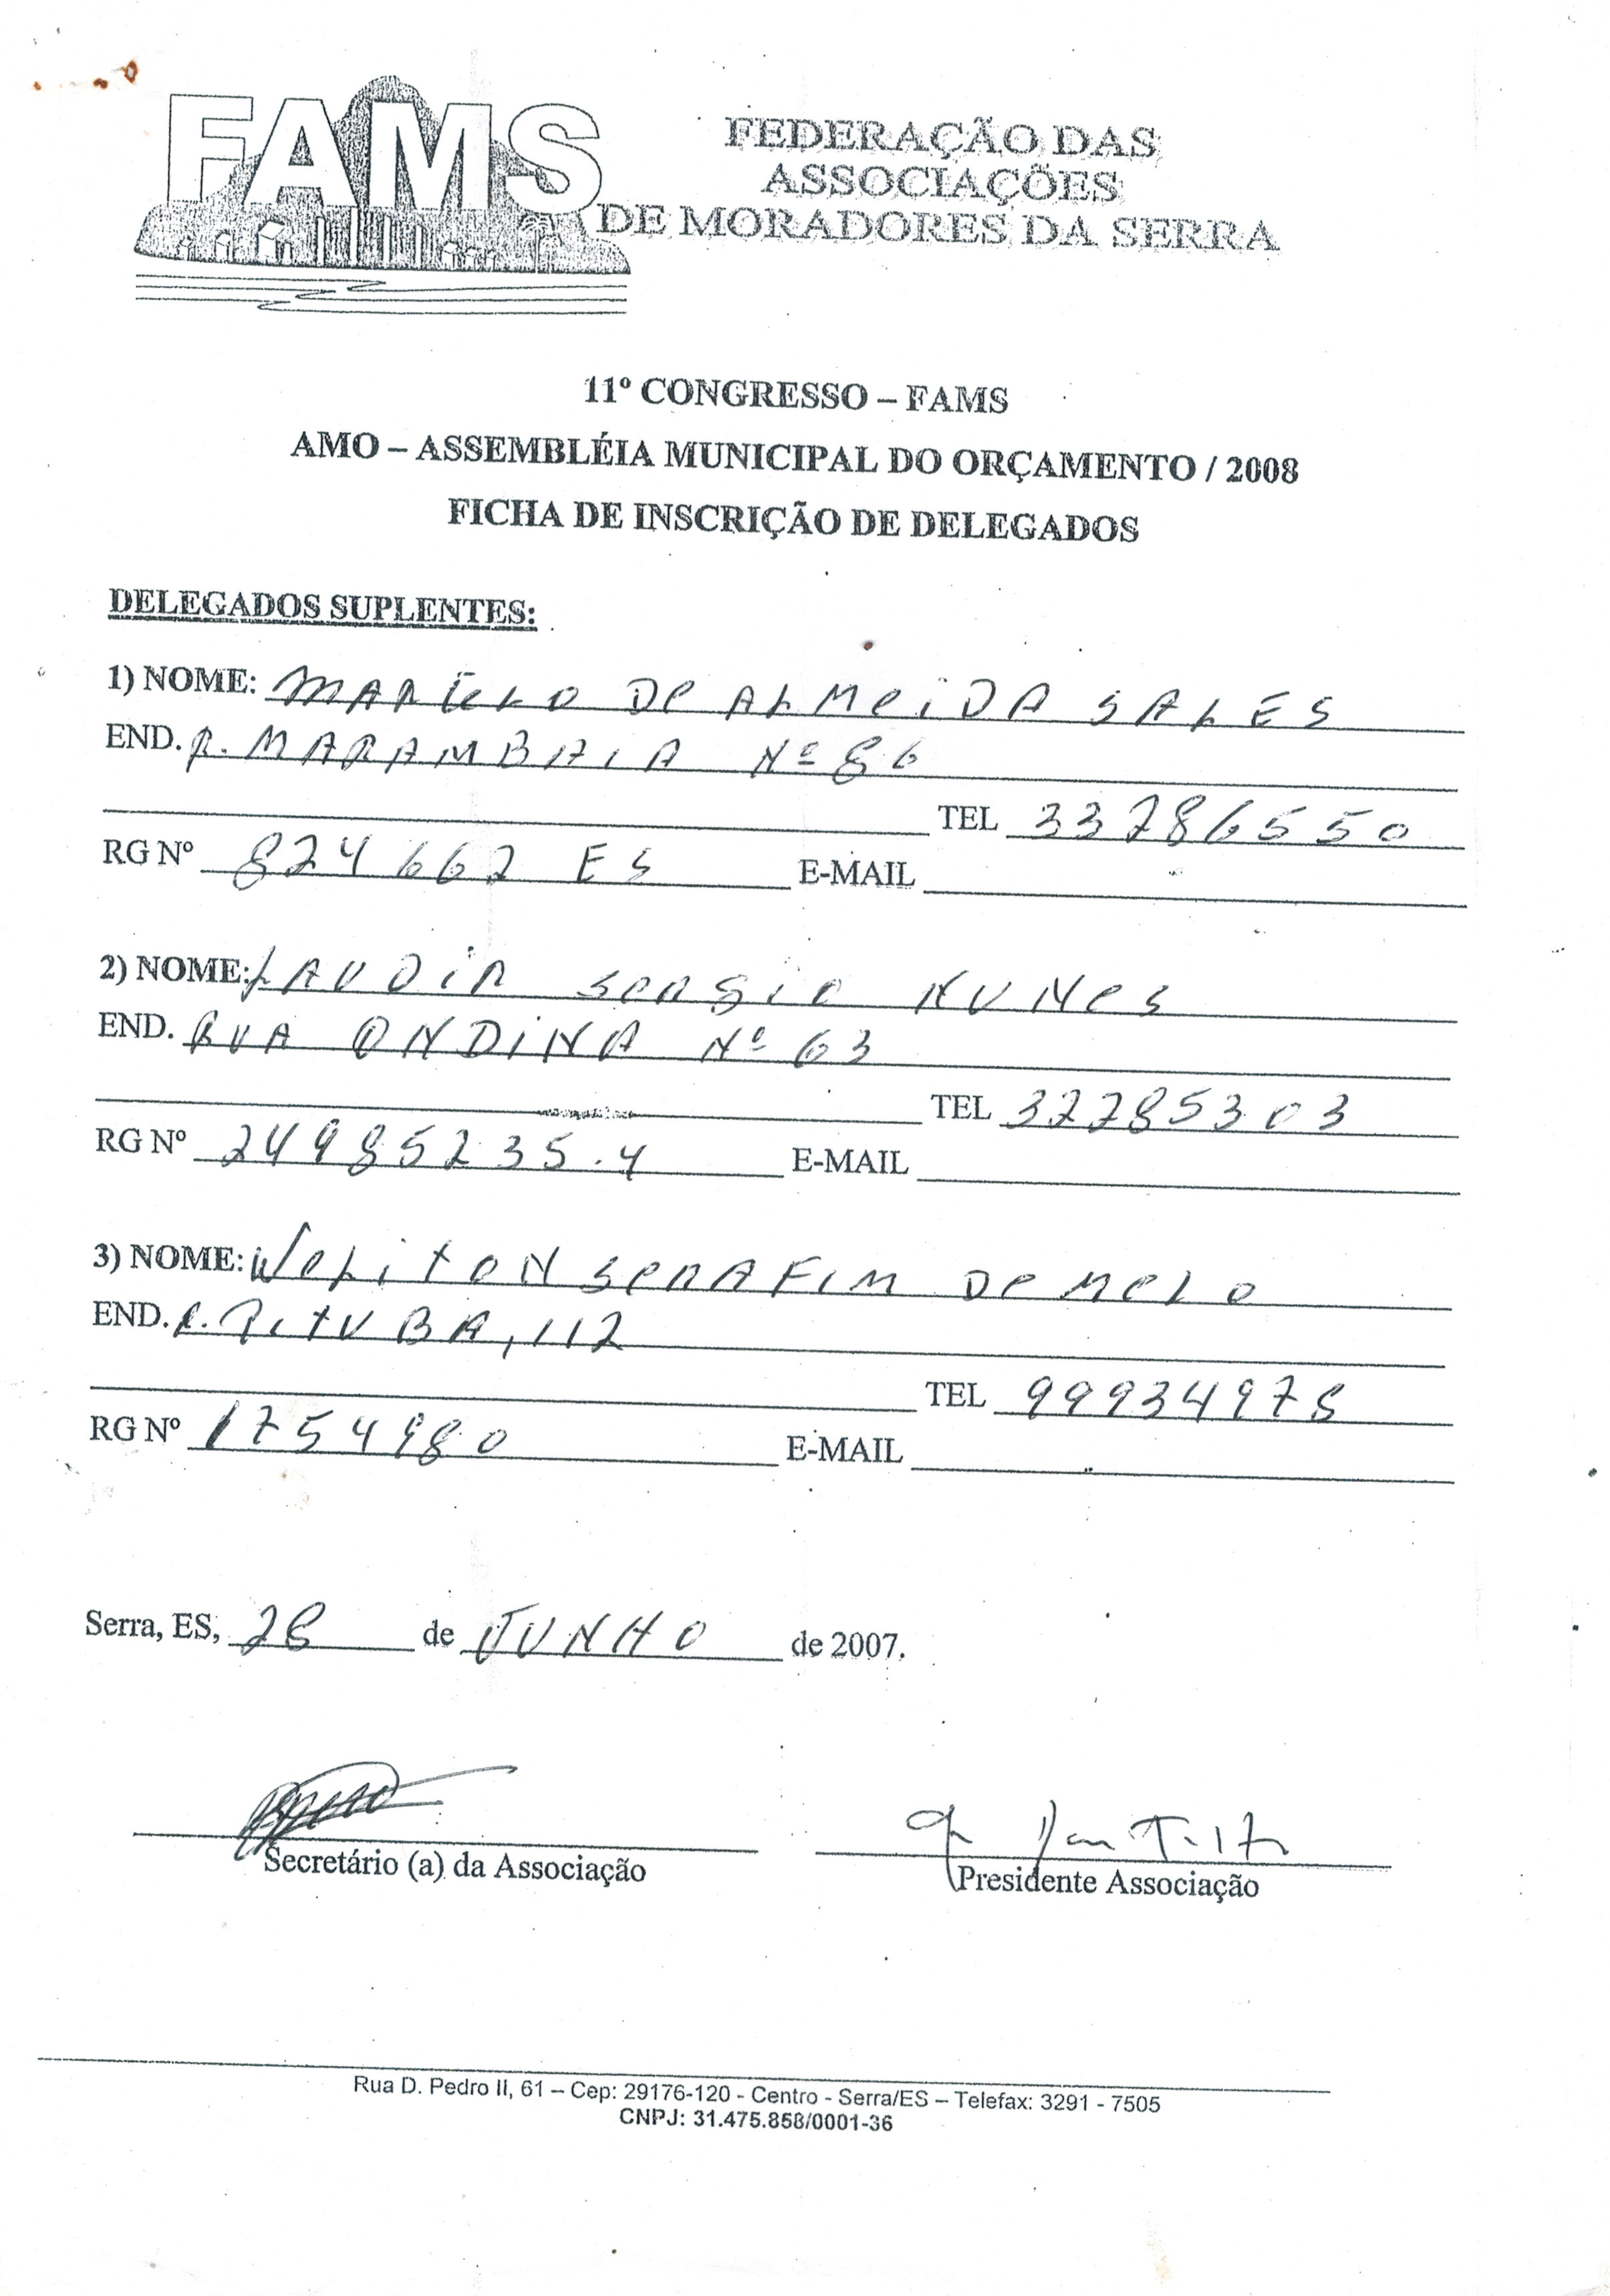 FAMS
FEDERAÇÃO DAS
ASSOCIAÇÕES
DE MORADORES DA SERRA
11º CONGRESSO – FAMS
AMO – ASSEMBLÉIA MUNICIPAL DO ORÇAMENTO / 2008
FICHA DE INSCRIÇÃO DE DELEGADOS
DELEGADOS SUPLENTES:
1) NOME: DE ALMEIDA SALES
END. R. MARAMBAIA Nº 86
TEL 33286550
RG Nº 824662 ES E-MAIL
2) NOME: LAUDIR SERGIO NUNES
END. RUA ONDINA Nº 63
TEL 32285303
RG Nº 24985235.4 E-MAIL
3) NOME: WELITON SERAFIM DE MELO
END. R. PITUBA, 112
TEL 99934978
RG Nº 1754980 E-MAIL
Serra, ES, 28 de JUNHO de 2007.
Secretário (a) da Associação
Presidente Associação
Rua D. Pedro II, 61 – Cep: 29176-120 - Centro - Serra/ES – Telefax: 3291 - 7505
CNPJ: 31.475.858/0001-36